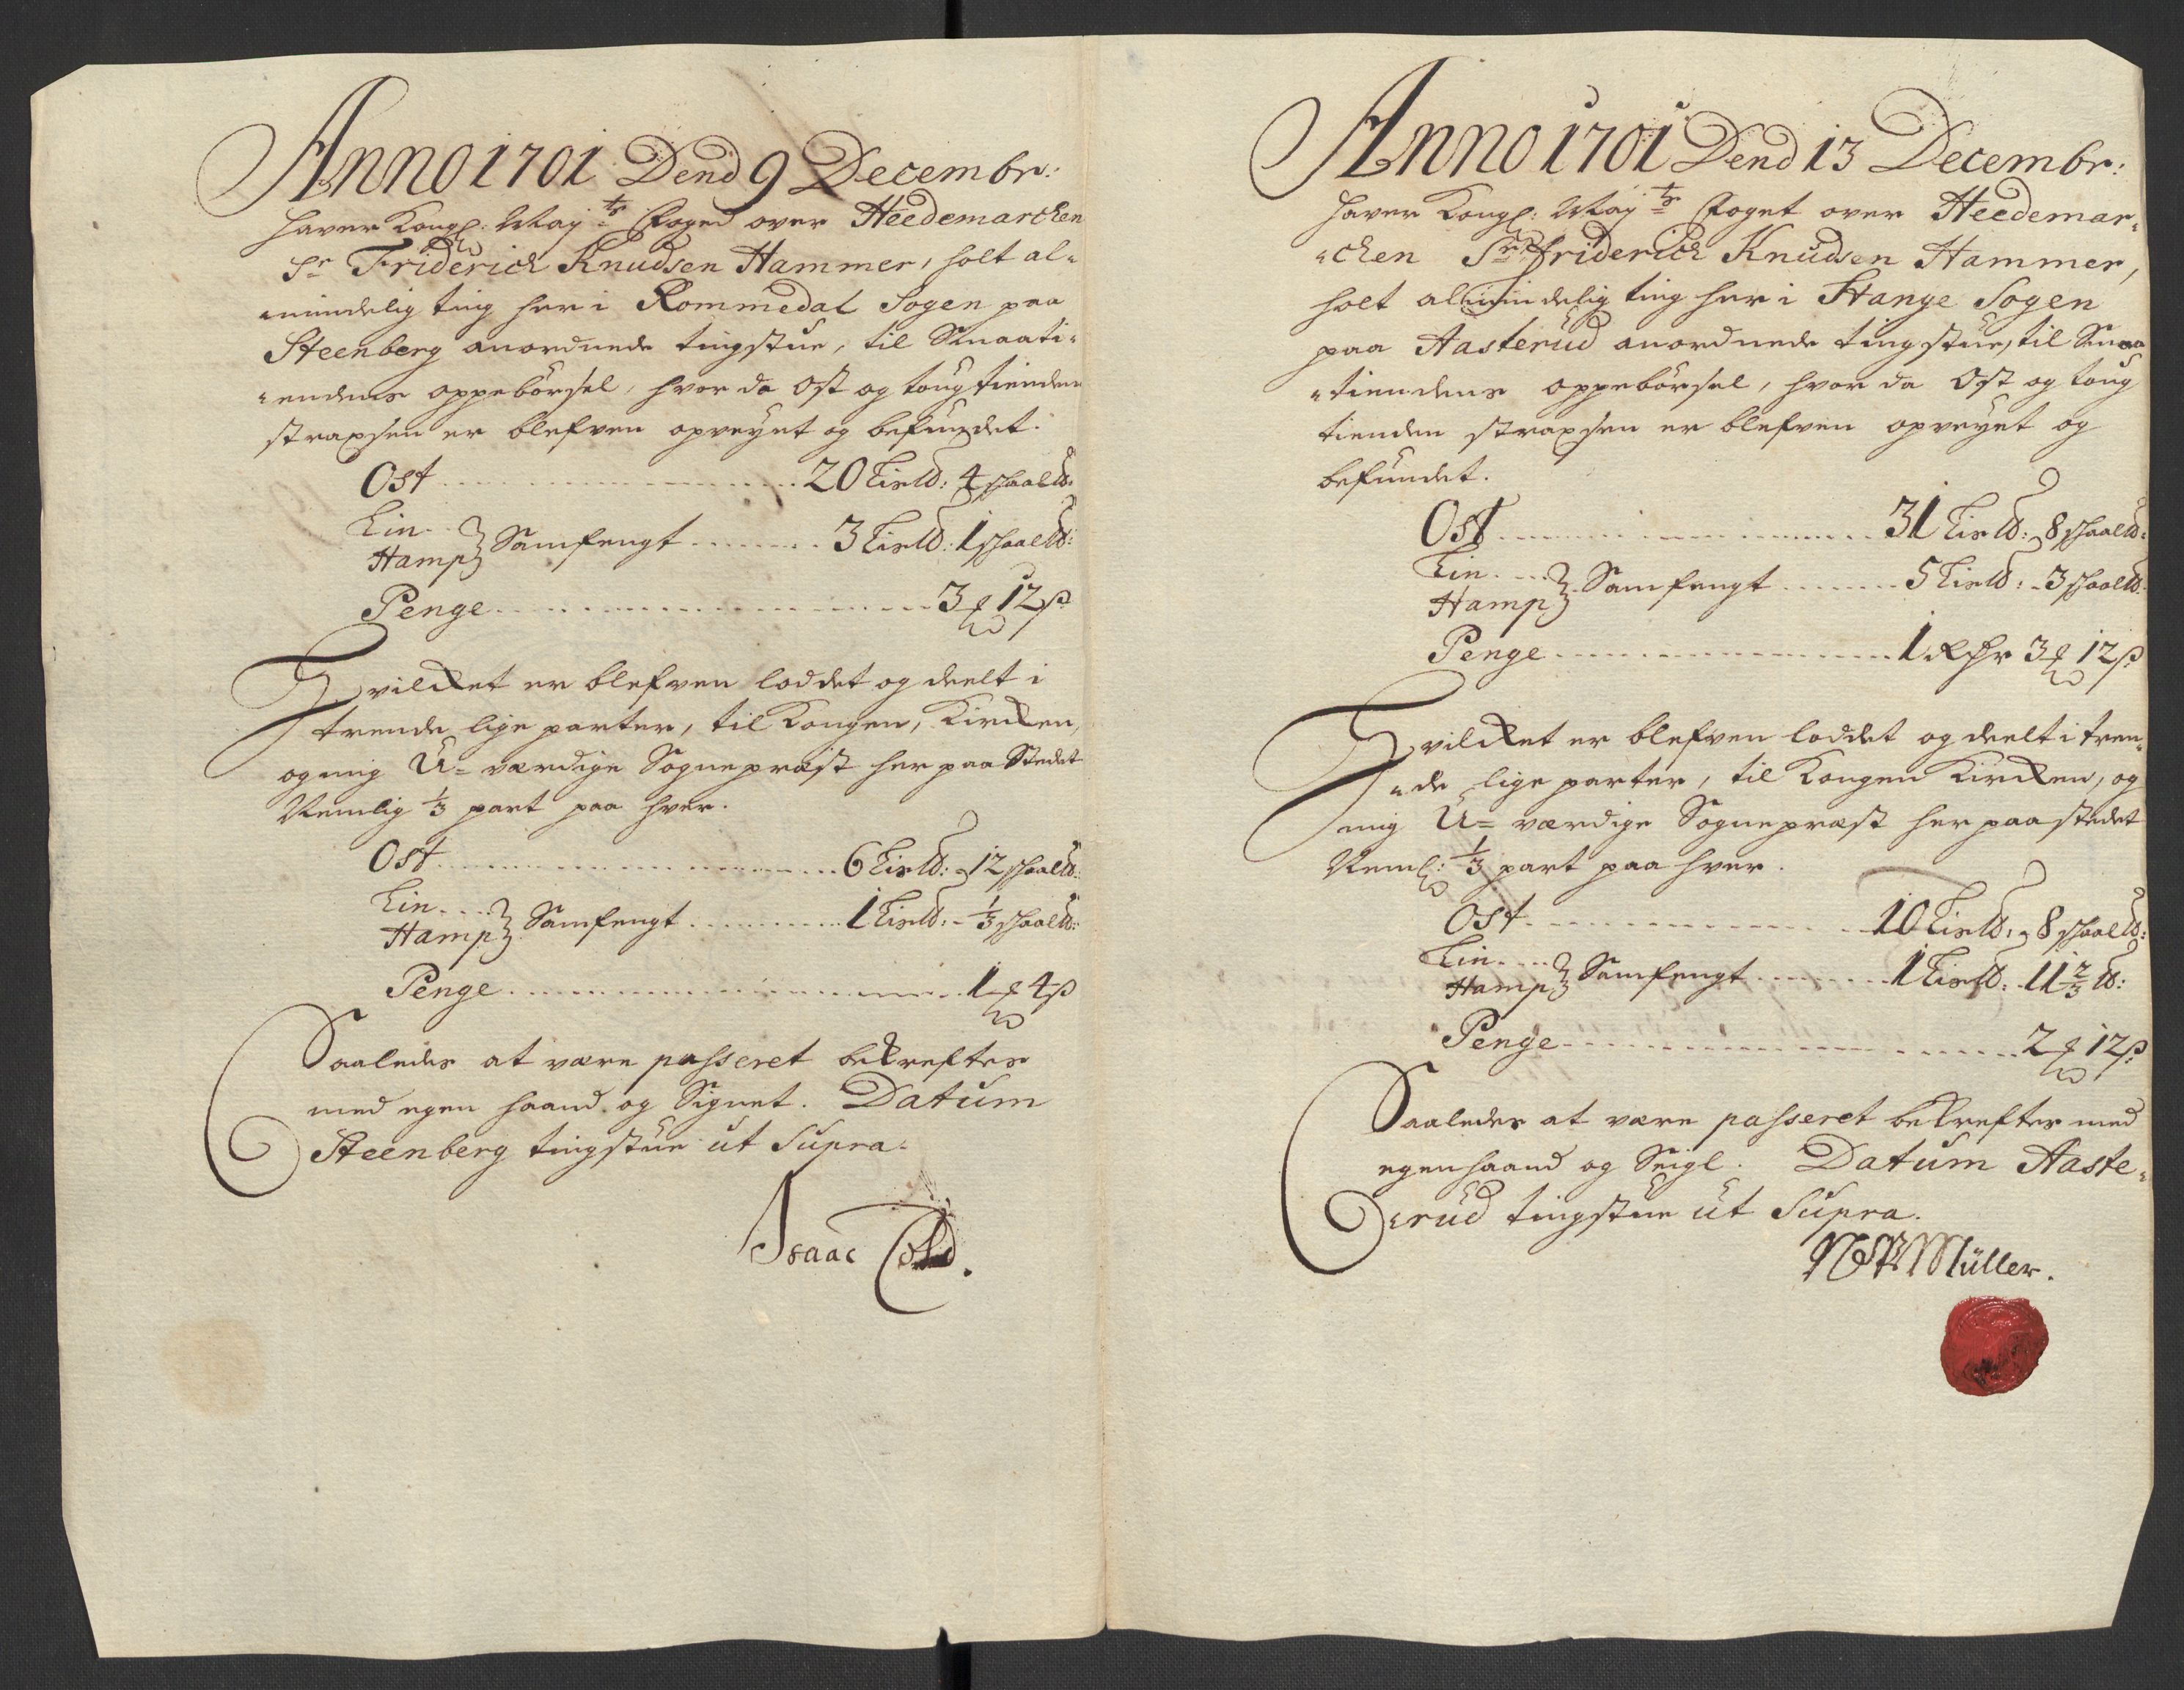 Anno 1701 Dend 9 Decembr:
haver Kongl: Mayts Foged over Heedemarcken
Sr Friderich Knudsen Hammer, holt al-
-mindelig ting her i Rommedal Sogen paa
Steenberg anordnede tingstue, til Smaati-
-endens oppebörsel, hvor da Ost og toug tienden
straxsen er blefven opveyet og befundet.
Ost 20 Lis℔: 4 skaal℔:
Lin
Hamp } Samfengt 3 Lis℔: 1 skaal℔:
Penge 3 ꝑ 12 ß
Hvilcket er blefven loddet og deelt i
trende lige parter, til Kongen, Kircken,
og mig U= værdige Sognepræst her paa Stedet
Nemlig 1/3 part paa hver.
Ost 6 Lis℔: 12 skaal℔:
Lin
Hamp } Samfengt 1 Lis℔: 1/3 skaal℔:
Penge 1 ꝑ 4 ß
Saaledes at være passeret bekreftes
med egen haand og Signet. Datum
Steenberg tingstue ut Supra.
Isaac Cold.
Anno 1701 Dend 13 Decembr:
haver Kongl: Mayts Foget over Heedemar-
-cken Sr Friderich Knudsen Hammer,
holt almindelig ting her i Stange Sogen
paa Aasterud anordnede tingstue, til Smaa
-tiendens oppebörsel, hvor da Ost og toug
tienden straxsen er blefven opveyet og
befundet.
Ost 31 Lis℔: 8 skaal℔:
Lin
Hamp } Samfengt 5 Lis℔: 3 skaal℔:
Penge 1 Rdr 3 ꝑ 12 ß
Hvilcket er blefven loddet og deelt i tren-
-de lige parter, til Kongen Kircken, og
mig U= værdige Sognepræst her paa stedet
Neml: 1/3 part paa hver.
Ost 10 Lis℔: 8 skaal℔:
Lin
Hamp } Samfengt 1 Lis℔: 11 2/3 ℔:
Penge 2 ꝑ 12 ß
Saaledes at være passeret bekreftes med
egen haand og Seigl. Datum Aaste-
-rud tingstue ut Supra.
Müller.